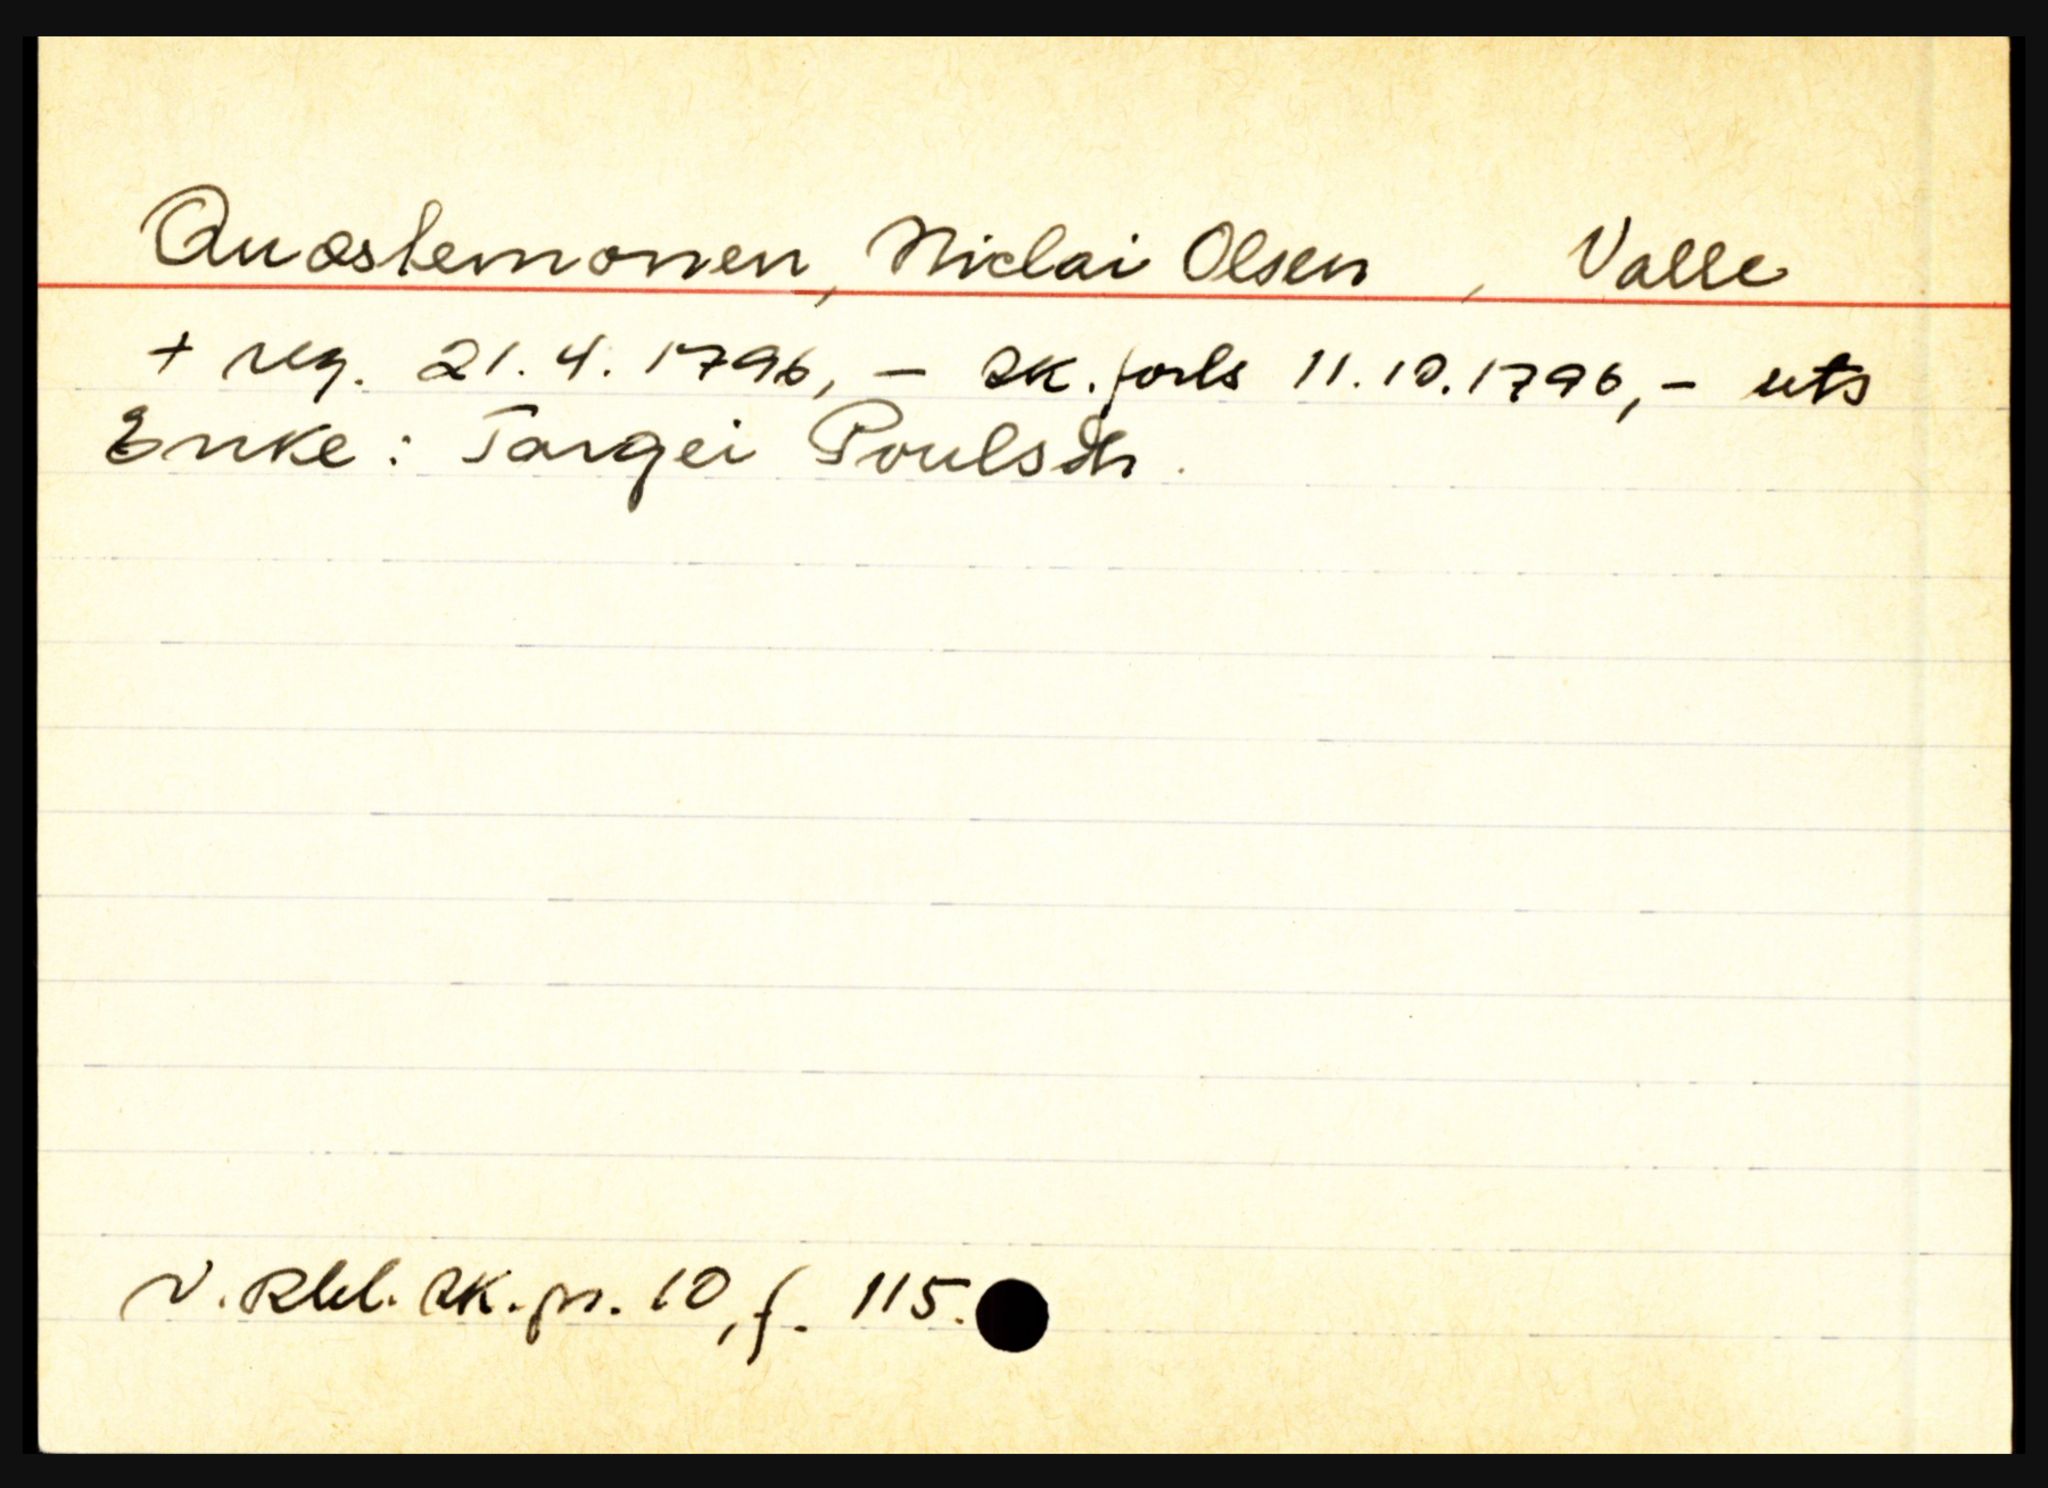 Quæstemonen, Niclai Olsen , Valle
+ reg. 21.4.1796, - sk.forls 11.10.1796, - uts
Enke: Targei Poulsdtr.
N. Rbl. sk.pr. 10, f. 115.